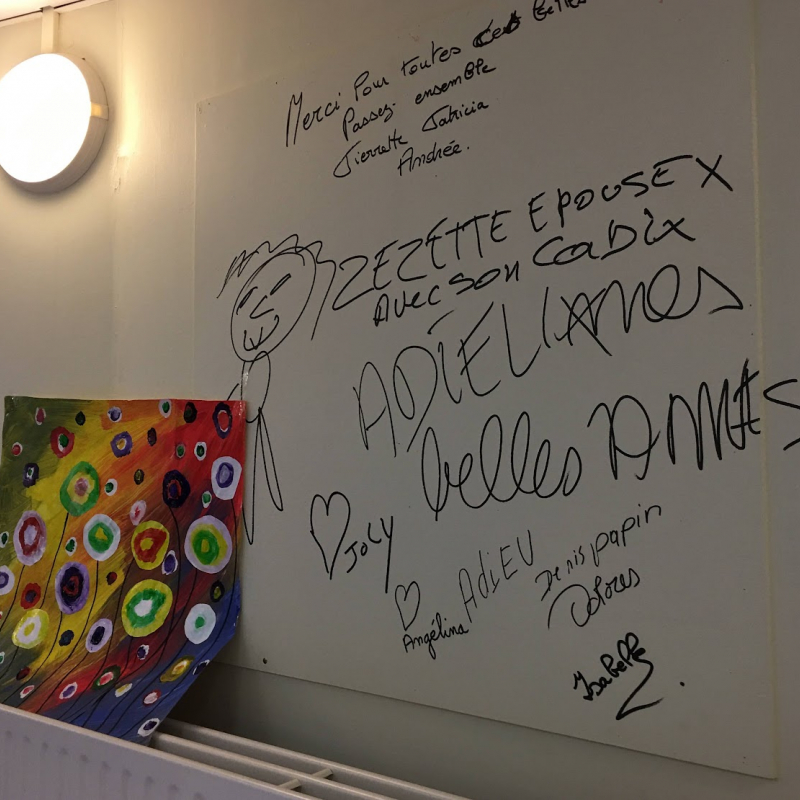 Merci Pour toutes ces belles
Passez ensemble
Pierrette Patricia
Andrée.
ZEZETTE EPOUSE X
AVEC SON CADIX
ADIEU
belles DAMES
JOCY
ADIEU
Angélina
Denis papin
Dolores
Isabelle